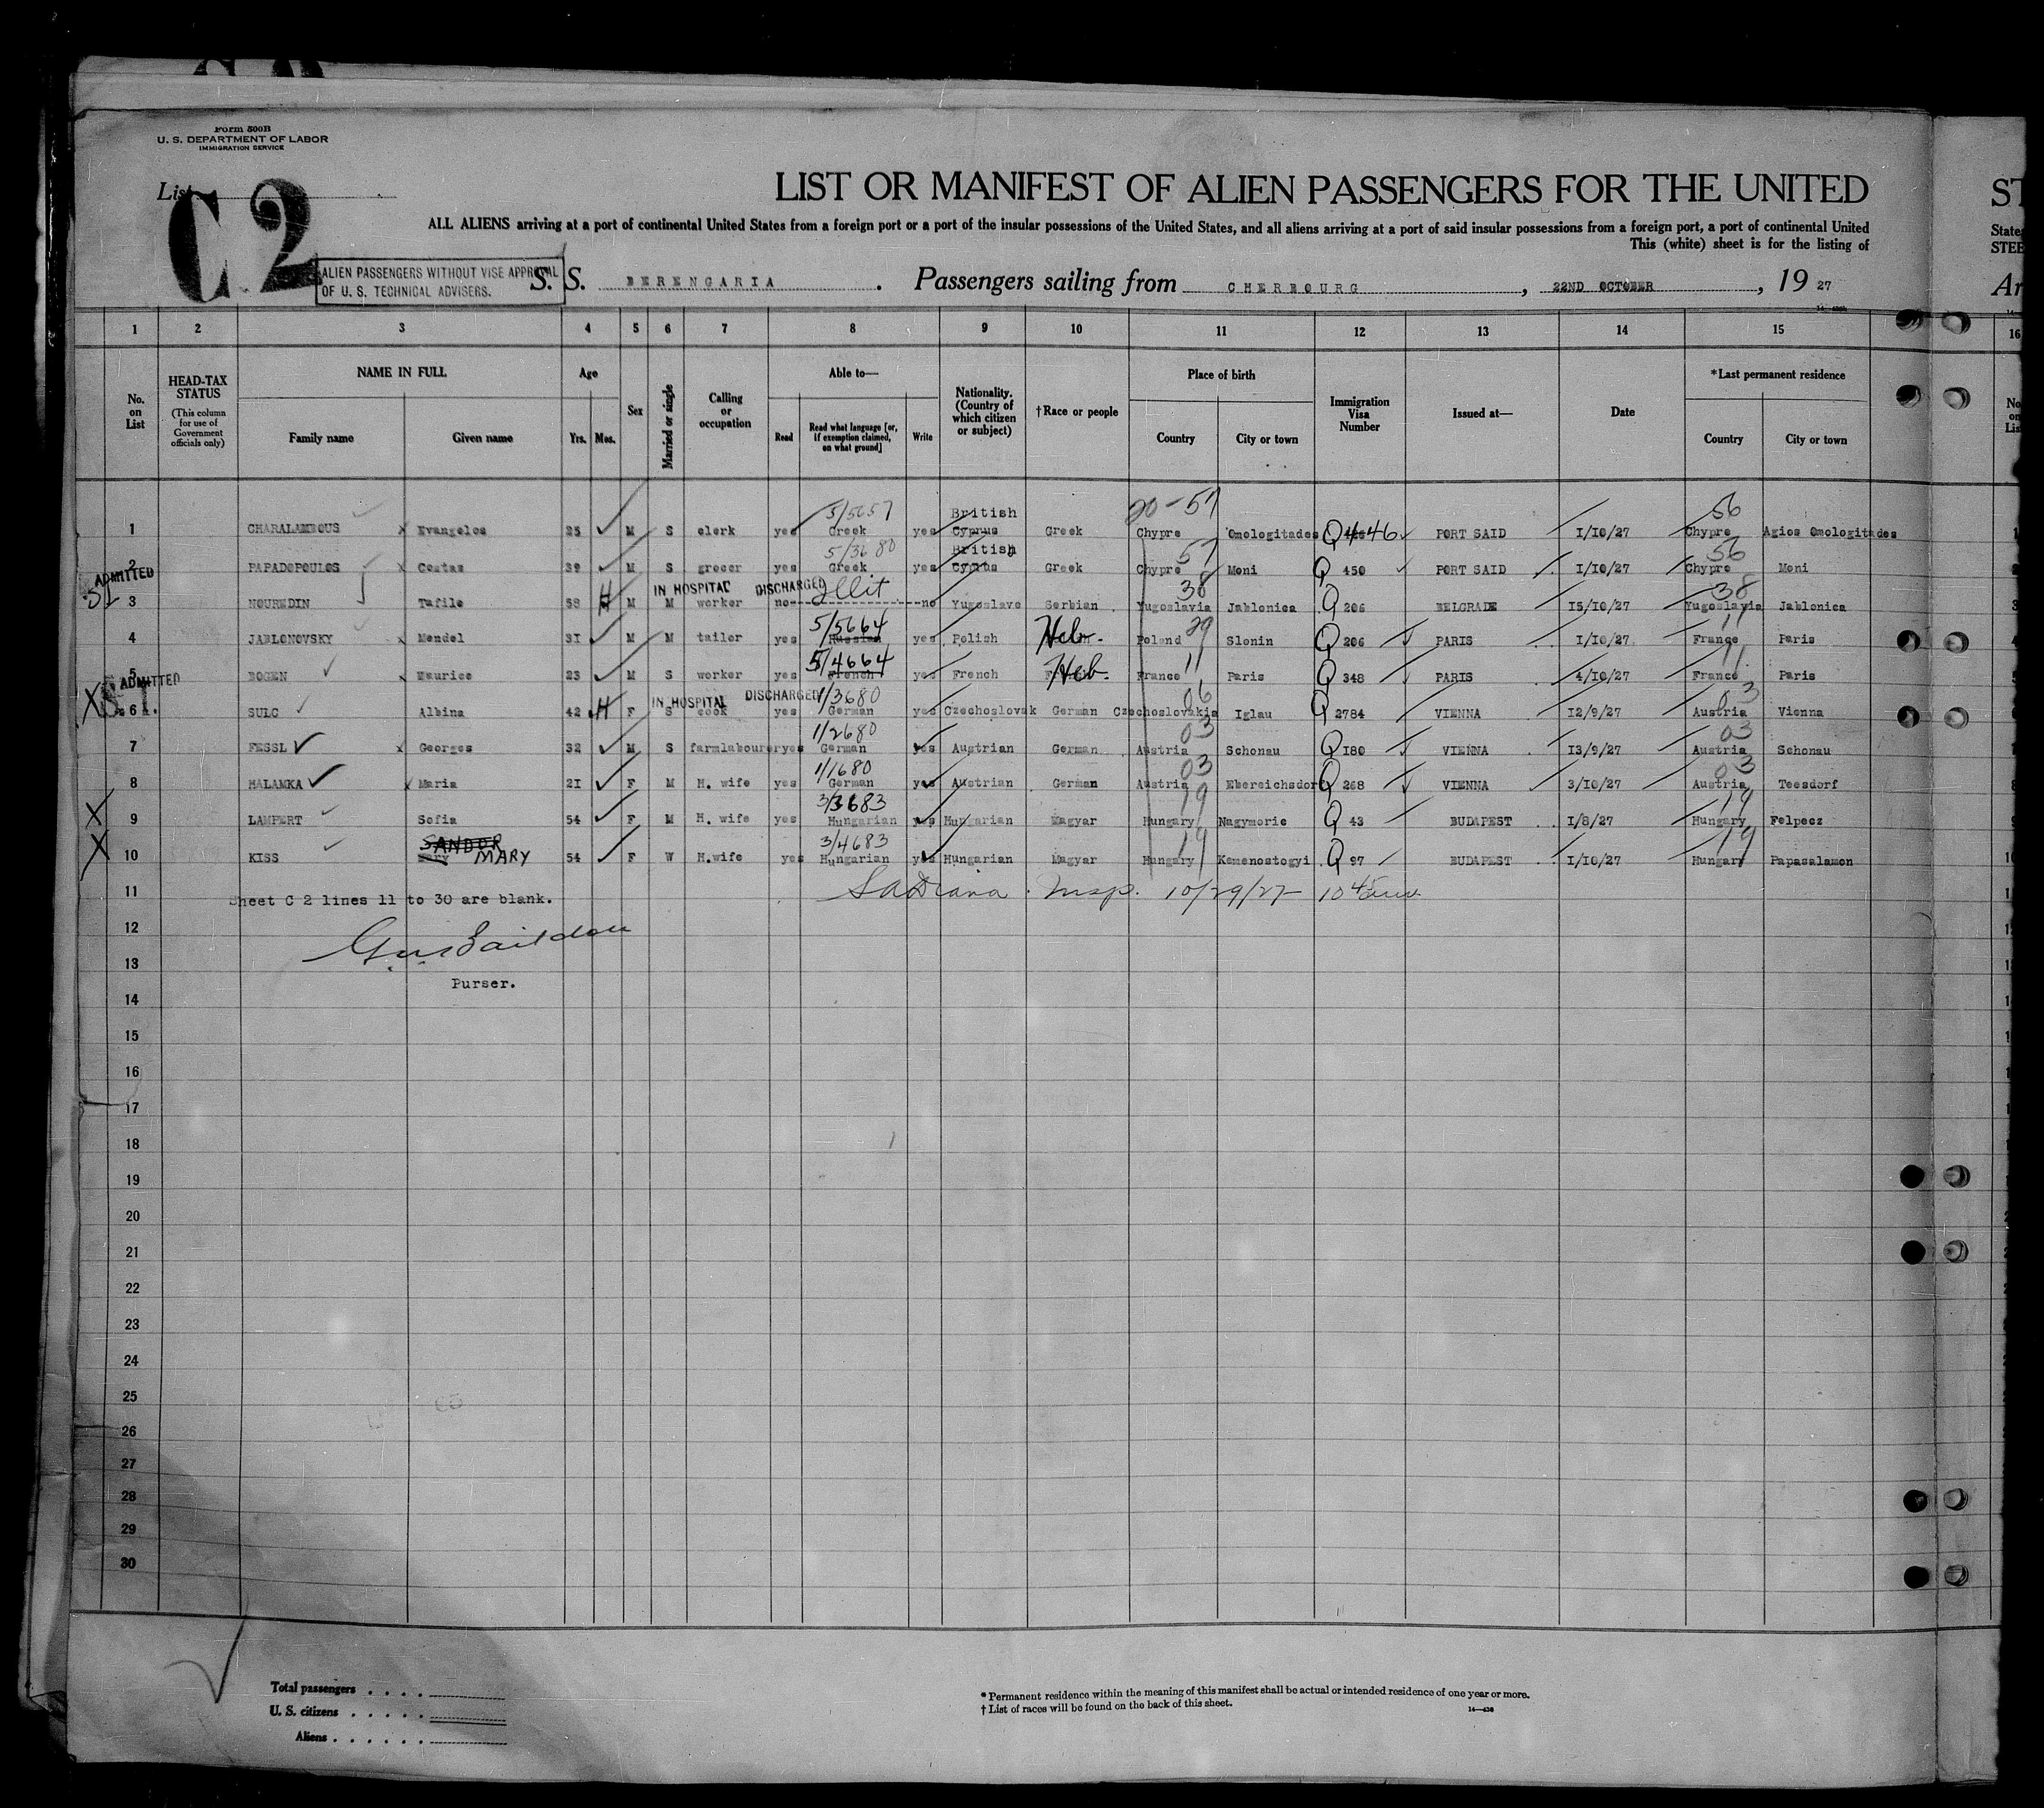 Form 500B
U. S. DEPARTMENT OF LABOR
IMMIGRATION SERVICE
List
C 2
LIST OR MANIFEST OF ALIEN PASSENGERS FOR THE UNITED
ST
ALL ALIENS arriving at a port of continental United States from a foreign port or a port of the insular possessions of the United States, and all aliens arriving at a port of said insular possessions from a foreign port, a port of continental United
State
This (white) sheet is for the listing of
STEE
ALIEN PASSENGERS WITHOUT VISE APPROVAL
OF U. S. TECHNICAL ADVISERS.
S. S. BERENGARIA. Passengers sailing from CHERBOURG, 22ND OCTOBER, 19 27
Ar
1 2 3 4 5 6 7 8 9 10 11 12 13 14 15 16
No. on List
HEAD-TAX STATUS (This column for use of Government officials only)
NAME IN FULL
Family name Given name
Age
Yrs. Mos.
Sex
Married or single
Calling or occupation
Able to—
Read
Read what language [or, if exemption claimed, on what ground]
Write
Nationality. (Country of which citizen or subject)
†Race or people
Place of birth
Country City or town
Immigration Visa Number
Issued at—
Date
*Last permanent residence
Country City or town
5/5657 British 20-57 56
1 CHARALAMBOUS x Evangelos 25 M S clerk yes Greek yes Cyprus Greek Chypre Omologitades Q 446 PORT SAID 1/10/27 Chypre Agios Omologitades
5/3680 British 57 56
2 PAPADOPOULOS x Costas 39 M S grocer yes Greek yes Cyprus Greek Chypre Moni Q 450 PORT SAID 1/10/27 Chypre Moni
ADMITTED H IN HOSPITAL DISCHARGED Illit 38 38
3 NOUREDIN Tafile 58 M M worker no no Yugoslave Serbian Yugoslavia Jablonica Q 206 BELGRADE 15/10/27 Yugoslavia Jablonica
5/5664 29 11
4 JABLONOVSKY x Mendel 31 M M tailor yes Russian yes Polish Heb. Poland Slonin Q 206 PARIS 1/10/27 France Paris
5/4664 11 11
5 BOGEN x Maurice 23 M S worker yes French yes French Heb. France Paris Q 348 PARIS 4/10/27 France Paris
ADMITTED H IN HOSPITAL DISCHARGED 1/3680 06 03
X S.I. 6 SULC Albina 42 F S cook yes German yes Czechoslovak German Czechoslovakia Iglau Q 2784 VIENNA 12/9/27 Austria Vienna
1/2680 03 03
7 FESSL x Georges 32 M S farmlabourer yes German yes Austrian German Austria Schonau Q 180 VIENNA 13/9/27 Austria Schonau
1/1680 03 03
8 HALAMKA x Maria 21 F M H. wife yes German yes Austrian German Austria Ebereichsdorf Q 268 VIENNA 3/10/27 Austria Teesdorf
3/3683 19 19
X 9 LAMPERT Sofia 54 F M H. wife yes Hungarian yes Hungarian Magyar Hungary Nagymoric Q 43 BUDAPEST 1/8/27 Hungary Felpecz
SANDOR 3/4683 19 19
X 10 KISS Mary MARY 54 F W H.wife yes Hungarian yes Hungarian Magyar Hungary Kemenostogyi Q 97 BUDAPEST 1/10/27 Hungary Papasalamon
11 Sheet C 2 lines 11 to 30 are blank. Insp. 10/29/27 10 45 am.
12
13
Purser.
14
15
16
17
18
19
20
21
22
23
24
25
26
27
28
29
30
Total passengers
U. S. citizens
Aliens
* Permanent residence within the meaning of this manifest shall be actual or intended residence of one year or more.
† List of races will be found on the back of this sheet.
14—436